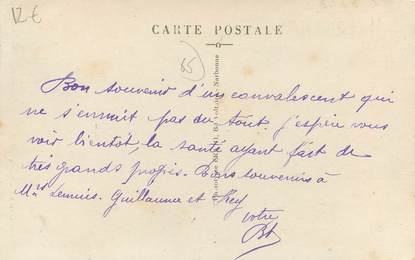 12 €
CARTE POSTALE
65
Bon souvenir d'un convalescent qui
ne s'ennuit pas du tout. j'espère vous
voir bientôt, la santé ayant fait de
très grands progrès. Bons souvenirs à
Guillaume et
votre